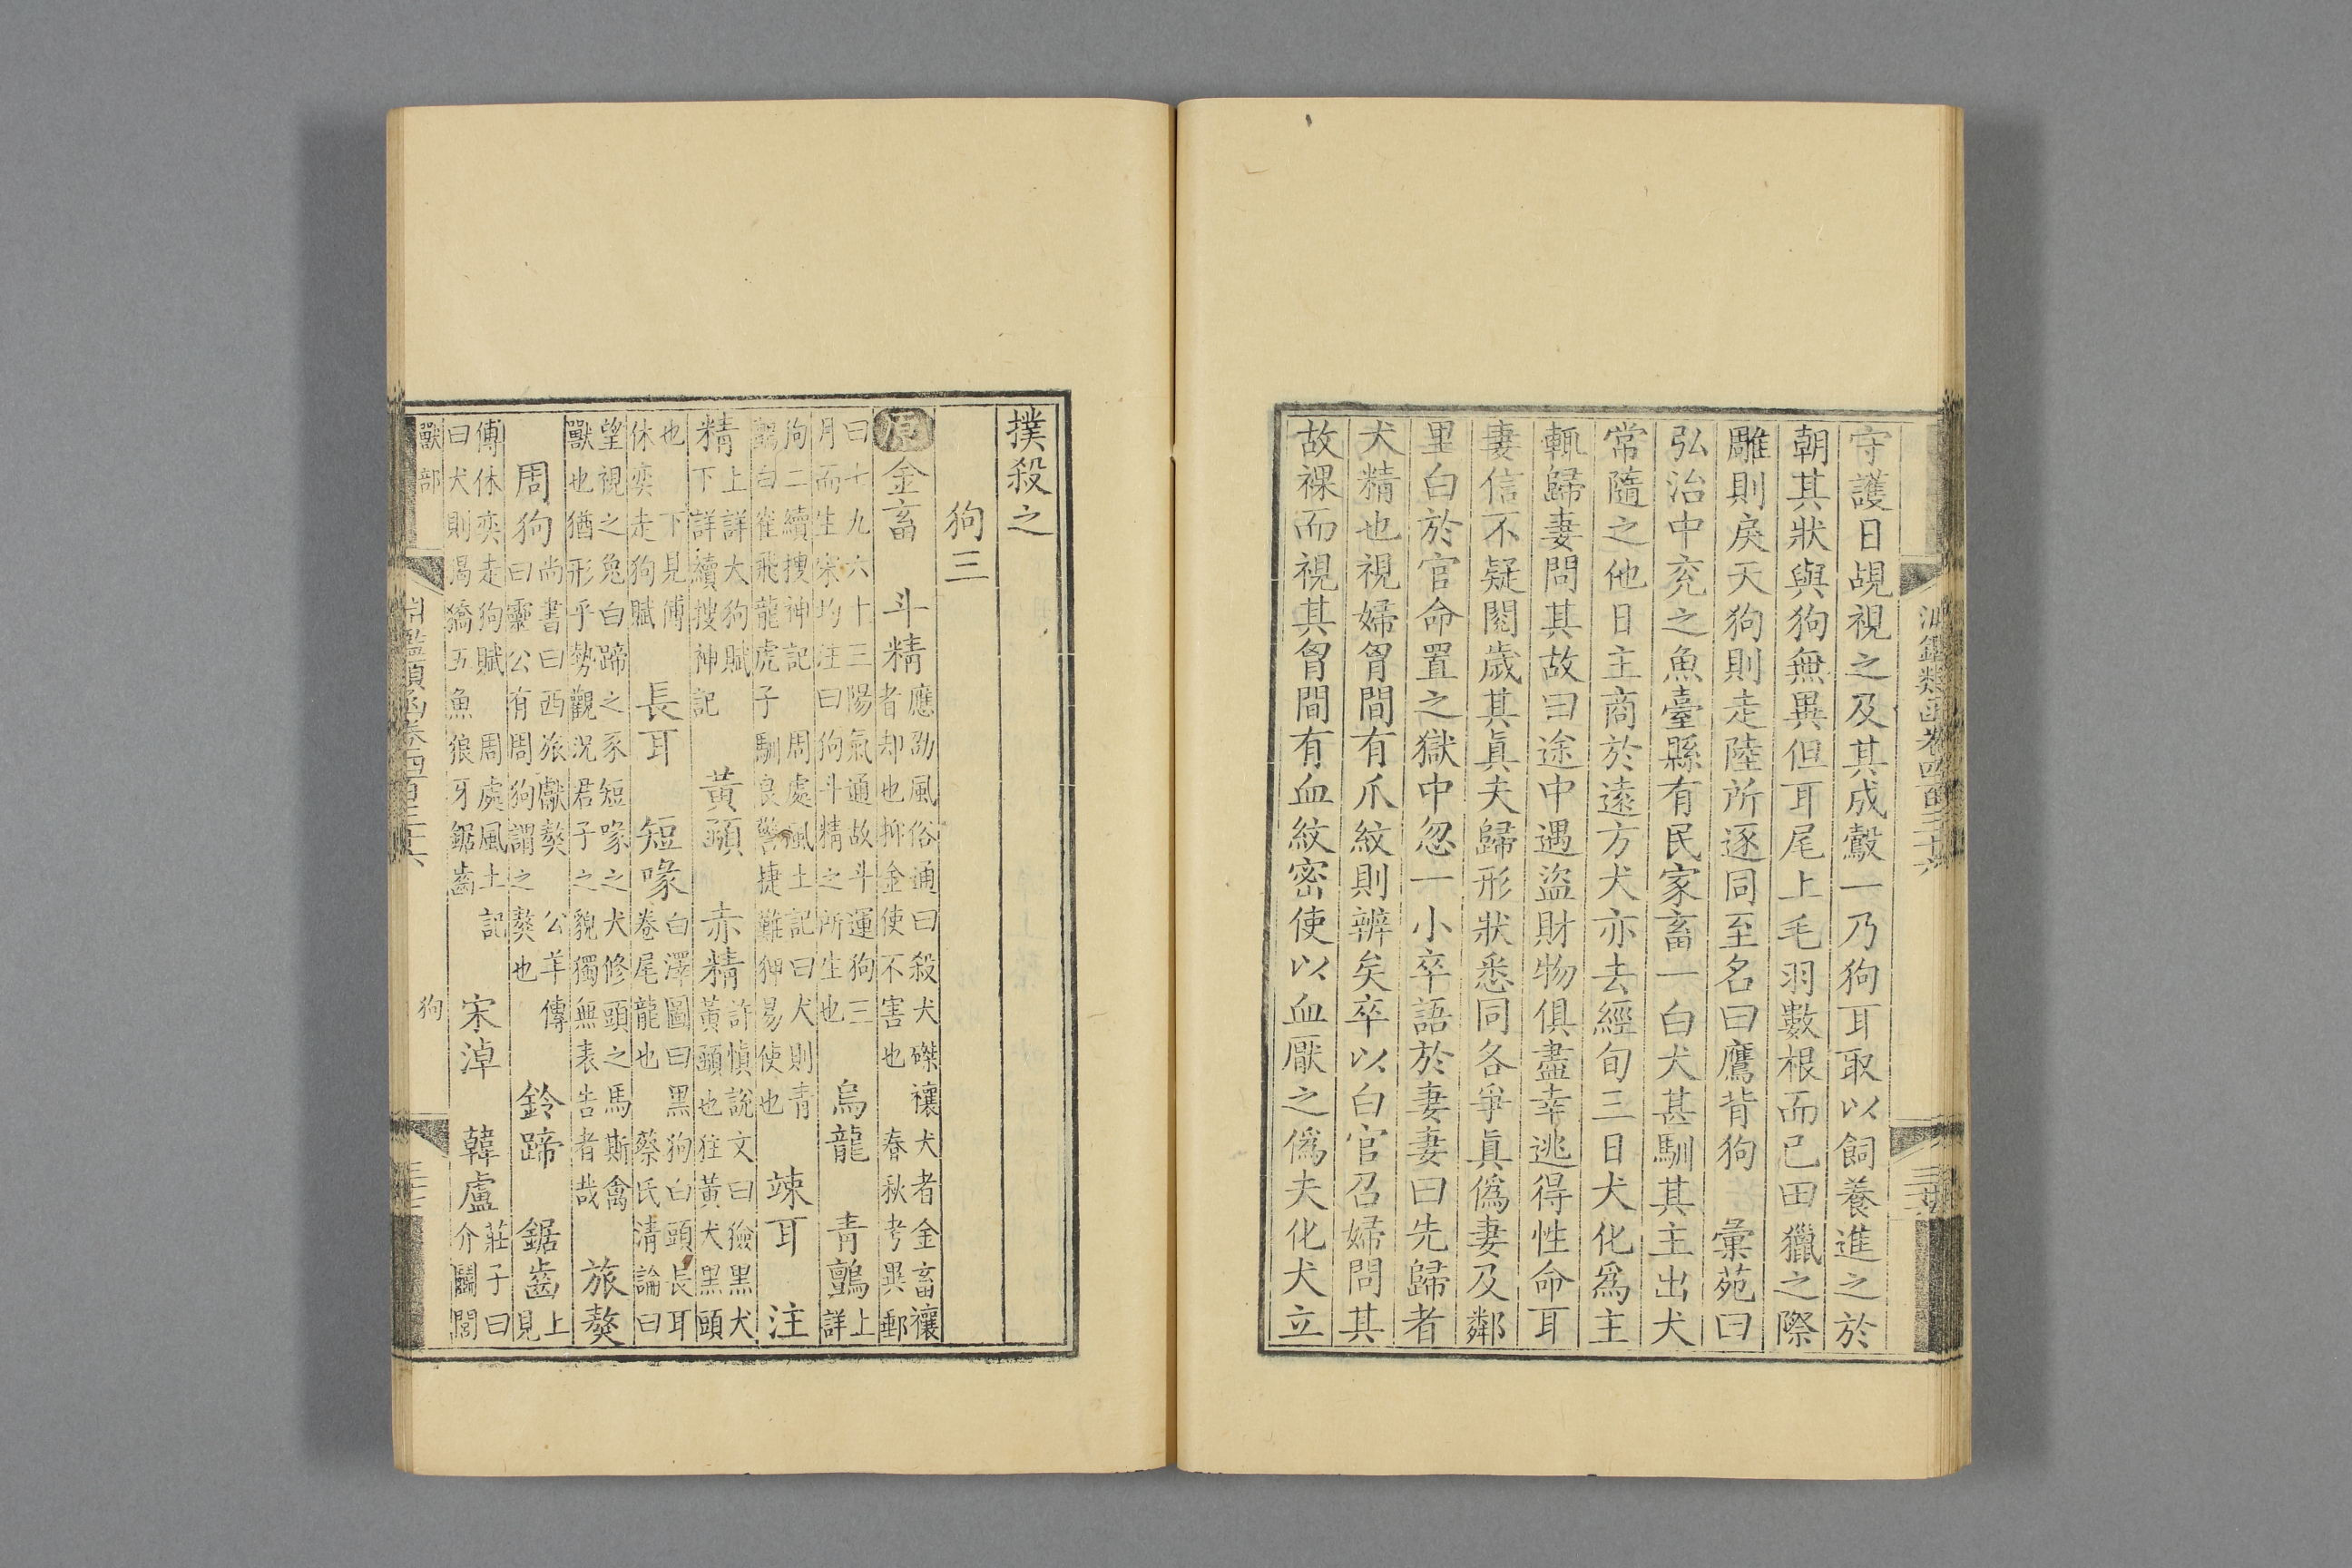 淵鑑類函卷四百三十六
守護日覘視之及其成鷇一乃狗耳取以飼養進之於
朝其狀與狗無異但耳尾上毛羽數根而已田獵之際
雕則戾天狗則走陸所逐同至名曰鷹背狗 彙苑曰
弘治中兖之魚臺縣有民家畜一白犬甚馴其主出犬
常隨之他日主商於遠方犬亦去經旬三日犬化爲主
輒歸妻問其故曰途中遇盜財物俱盡幸逃得性命耳
妻信不疑閱歲其眞夫歸形狀悉同各爭眞僞妻及鄰
里白於官命置之獄中忽一小卒語於妻妻曰先歸者
犬精也視婦胷間有爪紋則辨矣卒以白官召婦問其
故裸而視其胷間有血紋密使以血厭之僞夫化犬立
撲殺之
狗三
原金畜 斗精
應劭風俗通曰殺犬磔禳犬者金畜禳
者却也抑金使不害也 春秋考異郵
曰七九六十三陽氣通故斗運狗三
月而生宋均注曰狗斗精之所生也
烏龍 青鸇
上
詳
狗二續搜神記
鸇曰雀飛龍虎子
周處風土記曰犬則青
馴良警捷難狎易使也
竦耳 注
精
上詳犬狗賦
下詳續搜神記
黃頭 赤精
許慎說文曰獫黑犬
黃頭也狂黃犬黑頭
也 下見傅
休奕走狗賦
長耳 短喙
白澤圖曰黑狗白頭長耳
卷尾龍也 蔡氏清論曰
望視之兔白蹄之豕短喙之犬修頭之馬斯禽
獸也猶形乎勢觀況君子之貌獨無表告者哉
旅獒
周狗
尚書曰西旅獻獒 公羊傳
曰靈公有周狗謂之獒也
鈴蹄 鋸齒
上
見
傅休奕走狗賦 周處風土記
曰犬則渴獢五魚狼牙鋸齒
宋淖 韓盧
莊子曰
介鬬閭
獸部 狗
淵鑑類函卷四百三十六